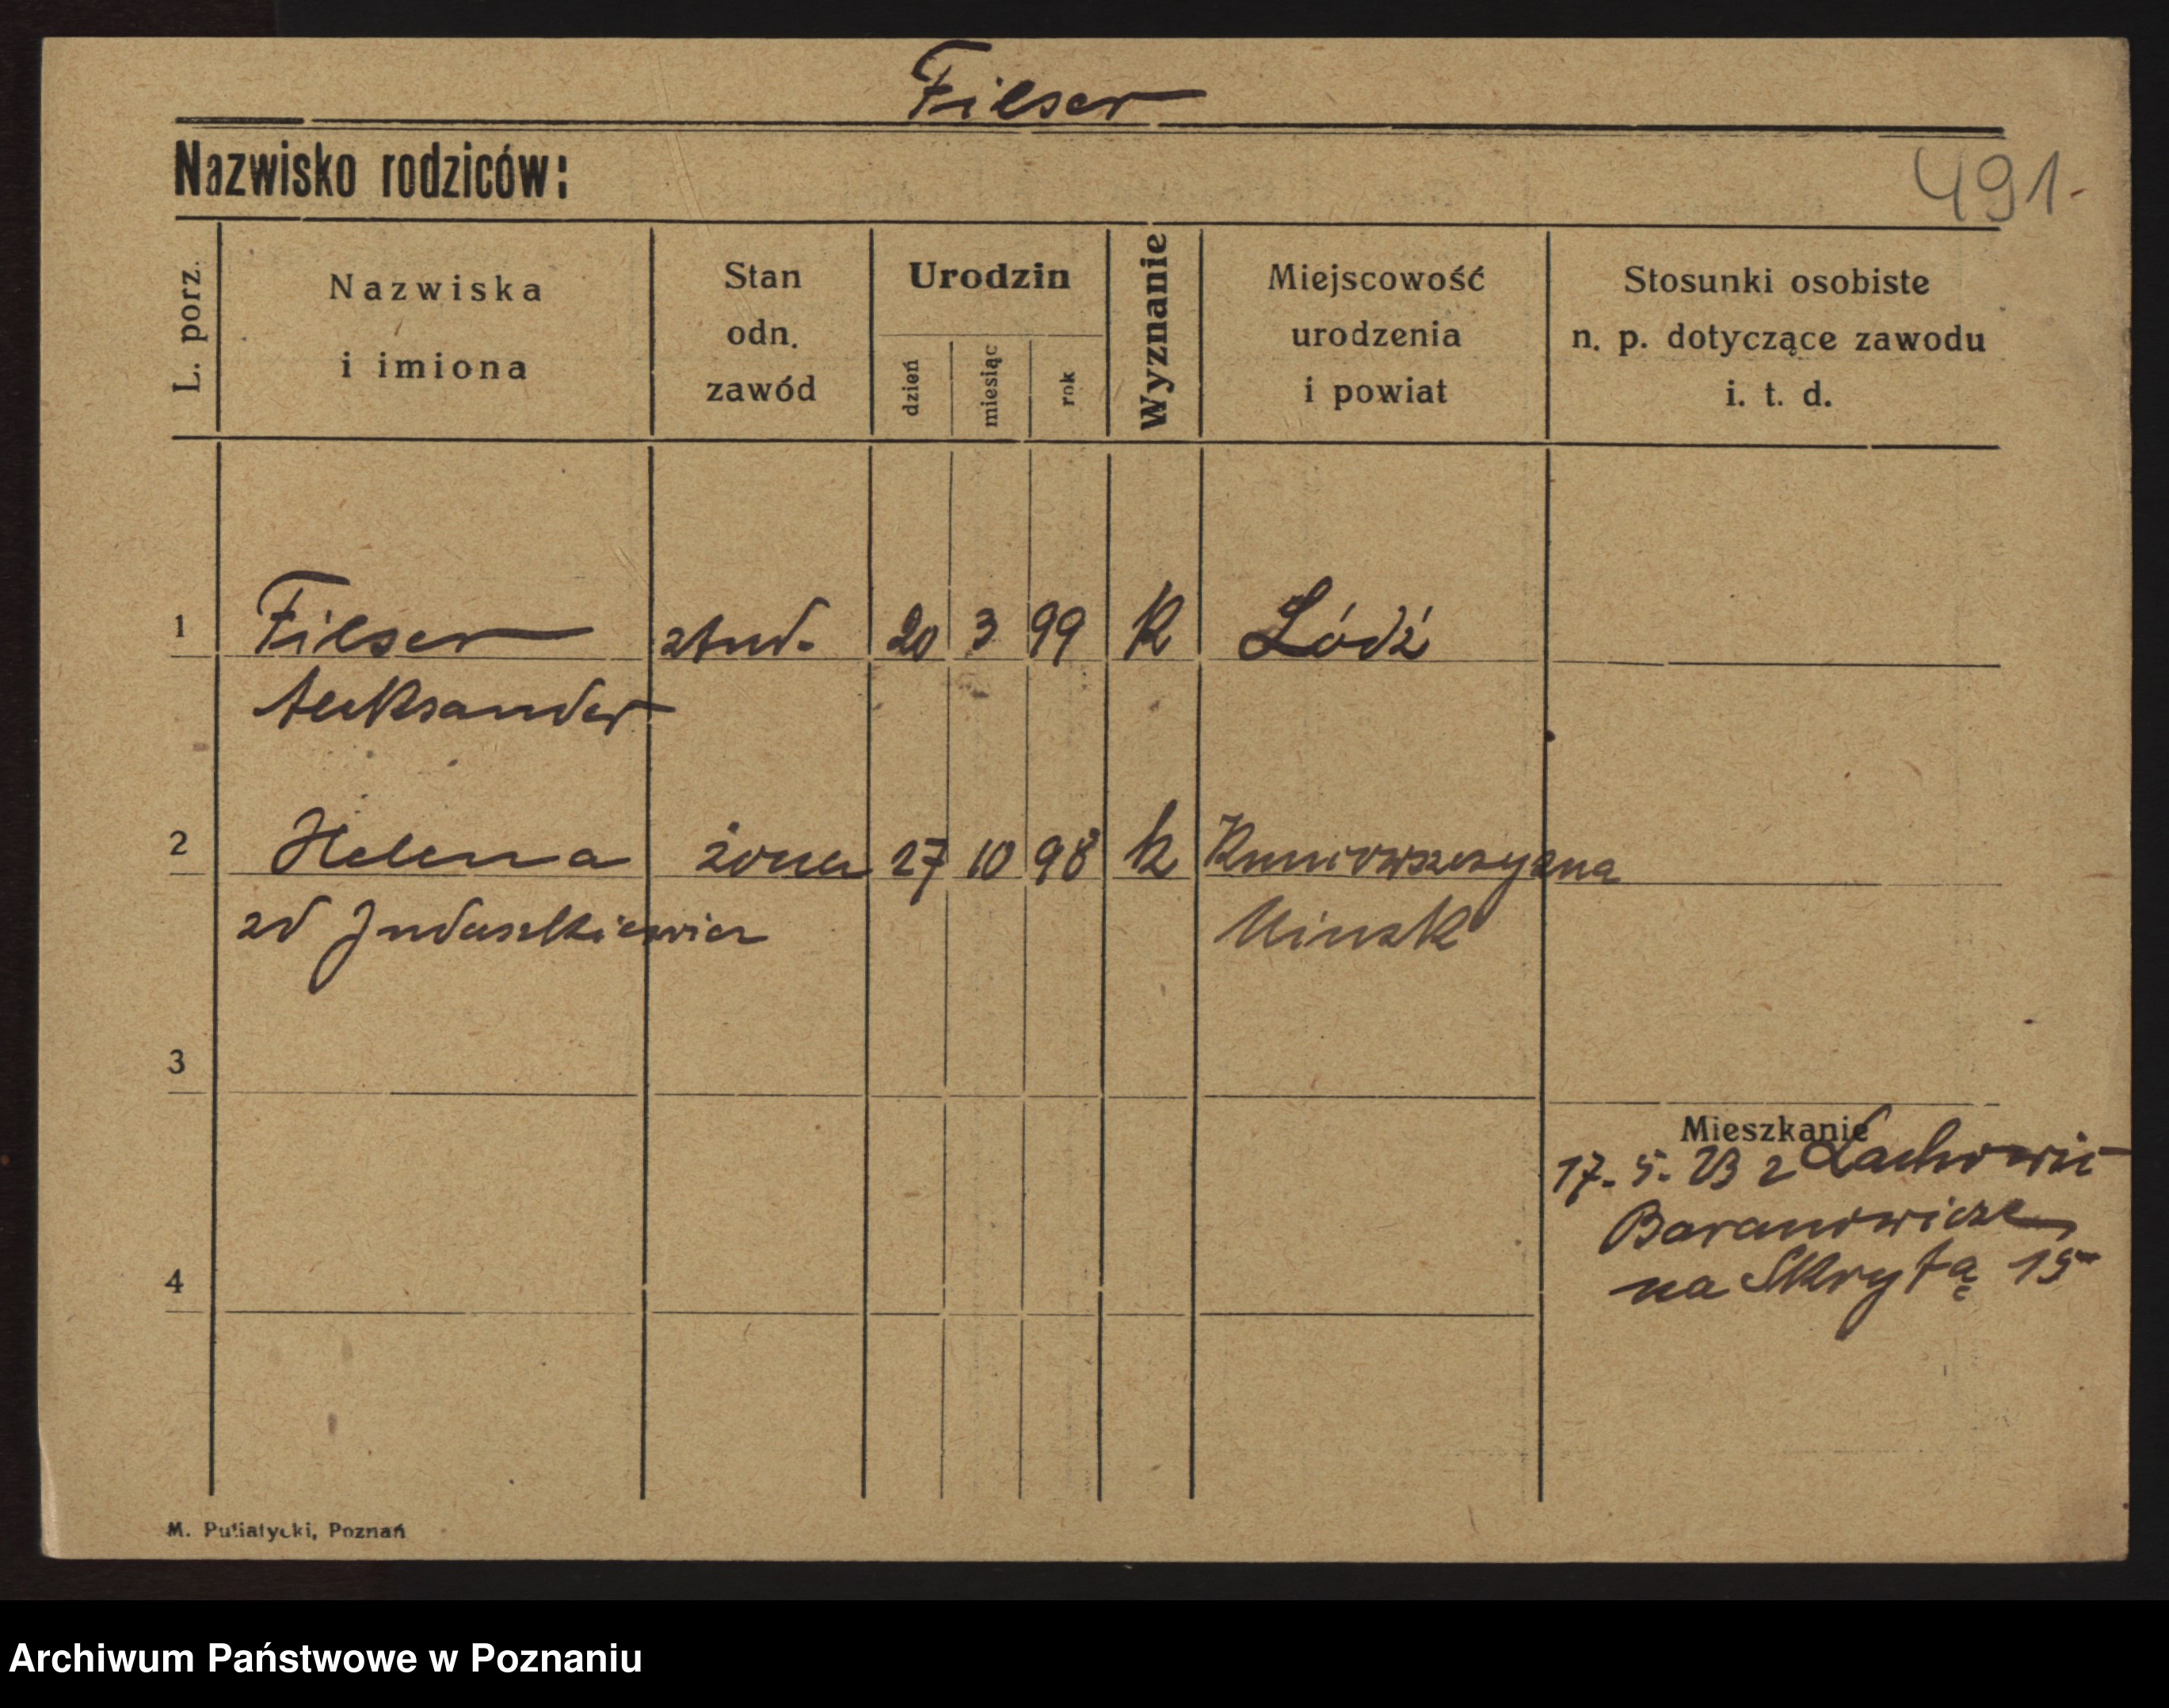 Filser
Nazwisko rodziców:
491.
L. porz.
Nazwiska
i imiona
Stan
odn.
zawód
Urodzin
dzień
miesiąc
rok
Wyznanie
Miejscowość
urodzenia
i powiat
Stosunki osobiste
n. p. dotyczące zawodu
i. t. d.
1 Filser stud. 20 3 99 K Łódź
Aleksander
2 Helena żona 27 10 98 k
zd Judaszkiewicz Minsk
3
Mieszkanie
17. 5. 23 z Lachowic
Baranowicze
4
na Skrytą 15
M. Putiatycki, Poznań
Archiwum Państwowe w Poznaniu